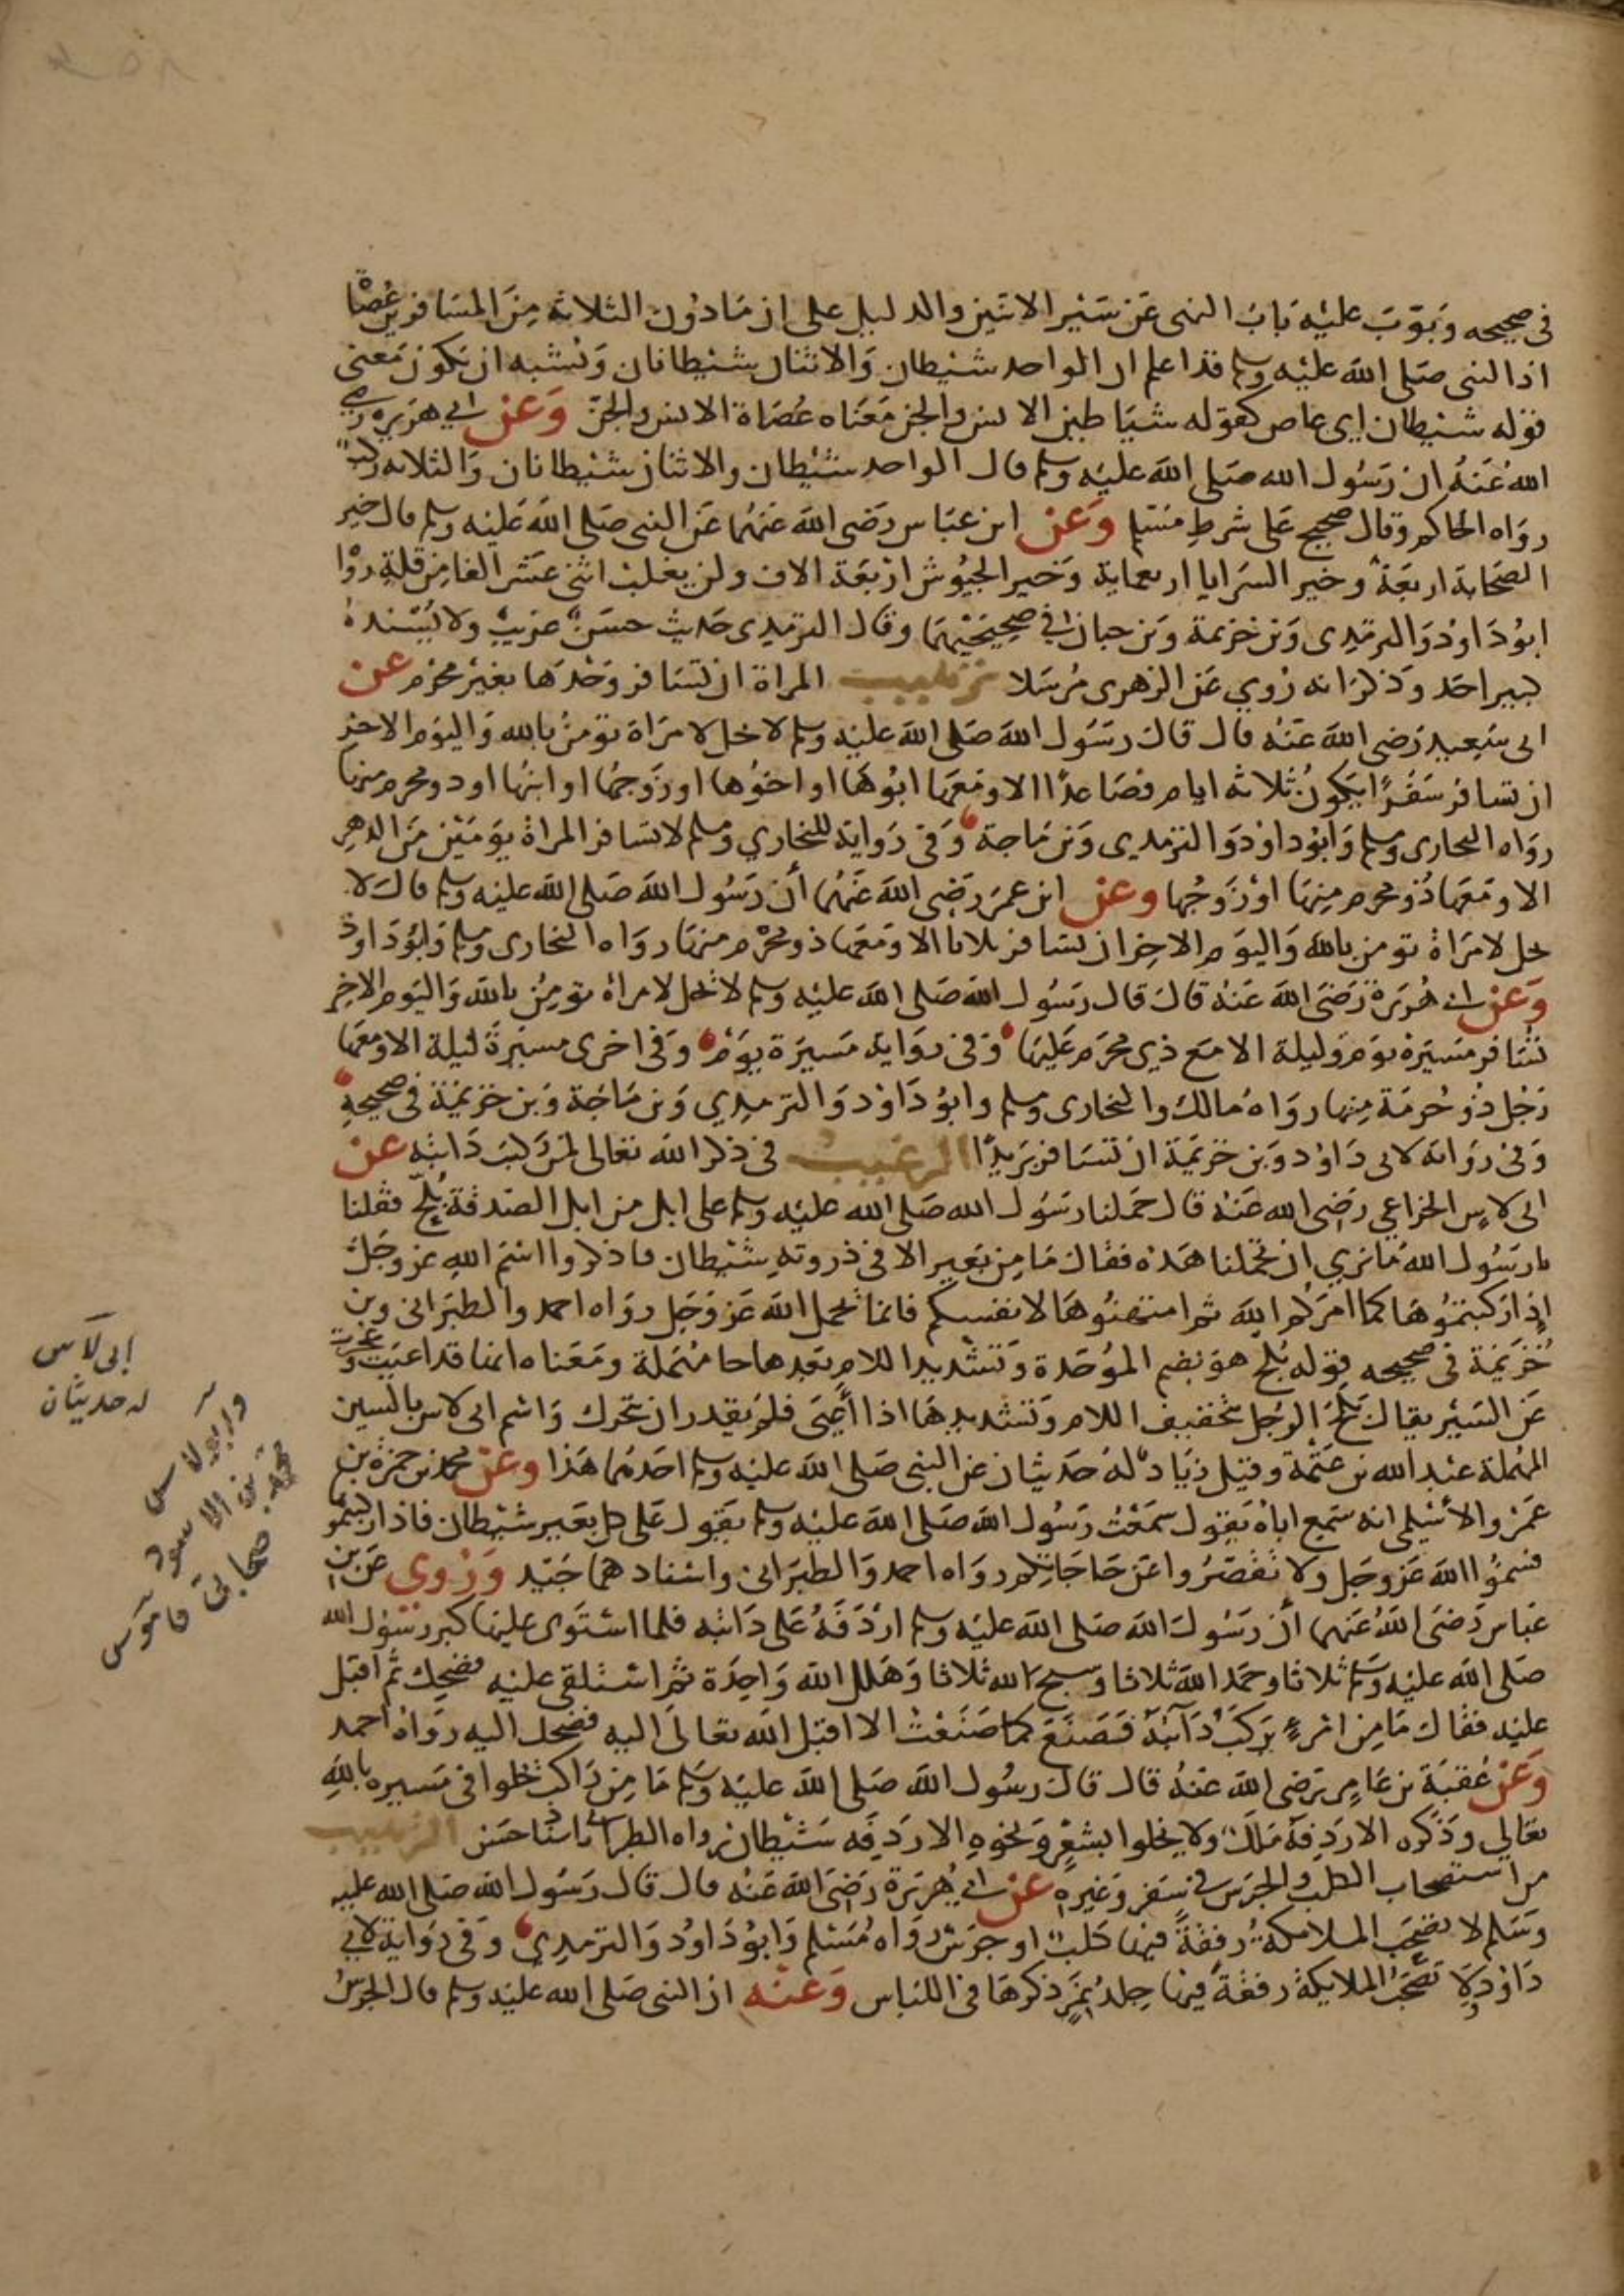 في صحيحه وبوب عليه باب النهي عن سير الاثنين والدليل على ان ما دون الثلاثة من المسافرين عصاة
اذ النبي صلى الله عليه وسلم قد اعلم ان الواحد شيطان والاثنان شيطانان ويشبه ان يكون معنى
قوله شيطان اي عاص كقوله شياطين الانس والجن معناه عصاة الانس والجن وعن ابي هريرة رضي
الله عنه ان رسول الله صلى الله عليه وسلم قال الواحد شيطان والاثنان شيطانان والثلاثه ركب
رواه الحاكم وقال صحيح على شرط مسلم وعن ابن عباس رضي الله عنهما عن النبي صلى الله عليه وسلم قال خير
الصحابة اربعة وخير السرايا اربعماية وخير الجيوش اربعة الاف ولن يغلب اثنى عشر الفا من قلة رواه
ابو داود والترمذي وبن خزيمة وبن حبان في صحيحيهما وقال الترمذي حديث حسن غريب ولا يسنده
كبير احد وذكر انه روي عن الزهري مرسلا ترهيب المراة ان تسافر وحدها بغير محرم عن
ابي سعيد رضي الله عنه قال قال رسول الله صلى الله عليه وسلم لا يحل لامراة تومن بالله واليوم الاخر
ان تسافر سفرا يكون ثلاثه ايام فصاعدا الا ومعها ابوها او اخوها او زوجها او ابنها او ذو محرم منها
رواه البخاري ومسلم وابو داود والترمذي وبن ماجة وفي رواية للبخاري ومسلم لا تسافر المراة يومين من الدهر
الا ومعها ذو محرم منها او زوجها وعن ابن عمر رضي الله عنهما أن رسول الله صلى الله عليه وسلم قال لا
يحل لامراة تومن بالله واليوم الاخر ان تسافر ثلاثا الا ومعها ذو محرم منها رواه البخاري ومسلم وابو داود
وعن ابي هريرة رضي الله عنه قال قال رسول الله صلى الله عليه وسلم لا تحل لامراة تومن بالله واليوم الاخر
تسافر مسيرة يوم وليلة الا مع ذي محرم عليها وفي رواية مسيرة يوم وفي اخرى مسيرة ليلة الا ومعها
رجل ذو حرمة منها رواه مالك والبخاري ومسلم وابو داود والترمذي وبن ماجة وبن خزيمة في صحيحه
وفي رواية لابي داود وبن خزيمة ان تسافر بريدا الترغيب في ذكر الله تعالى لمن ركب دابته عن
ابي لاس الخزاعي رضي الله عنه قال حملنا رسول الله صلى الله عليه وسلم على ابل من ابل الصدقة بلح فقلنا
يا رسول الله ما نري ان تحملنا هذه فقال ما من بعير الا في ذروته شيطان فاذكروا اسم الله عز وجل
إذا ركبتموها كما امركم الله ثم امتهنوها لانفسكم فانما يحمل الله عز وجل رواه احمد والطبراني وبن
خزيمة في صحيحه قوله بلح هو بضم الموحدة وتشديد اللام بعدها حا مهملة ومعناه انها قد اعيت وعجزت
عن السير يقال بلح الرجل بتخفيف اللام وتشديدها اذا أعيى فلم يقدر ان يتحرك واسم ابي لاس بالسين
المهملة عبد الله بن عتمة وقيل زياد له حديثان عن النبي صلى الله عليه وسلم احدهما هذا وعن محمد بن حمزة بن
عمرو الأسلمي انه سمع اباه يقول سمعت رسول الله صلى الله عليه وسلم يقول على كل بعير شيطان فاذا ركبتموها
فسموا الله عز وجل ولا تقصروا عن حاجاتكم رواه احمد والطبراني واسنادهما جيد وروي عن ابن
عباس رضي الله عنهما أن رسول الله صلى الله عليه وسلم اردفه على دابته فلما استوى عليها كبر رسول الله
صلى الله عليه وسلم ثلاثا وحمد الله ثلاثا وسبح الله ثلاثا وهلل الله واحدة ثم استلقى عليه فضحك ثم اقبل
عليه فقال ما من امرء يركب دآبته فصنع كما صنعت الا اقبل الله تعالى اليه فضحك اليه رواه احمد
وعن عقبة بن عامر رضي الله عنه قال قال رسول الله صلى الله عليه وسلم ما من راكب يخلوا في مسيره بالله
تعالي وذكره الا ردفه ملك ولا يخلوا بشعر ونحوه الا ردفه شيطان رواه الطبراني باسناد حسن الترهيب
من استصحاب الكلب والجرس في سفر وغيره عن ابي هريرة رضي الله عنه قال قال رسول الله صلى الله عليه
وسلم لا تصحب الملائكة رفقة فيها كلب او جرس رواه مسلم وابو داود والترمذي وفي رواية لابي
داود ولا تصحب الملايكة رفقة فيها جلد نمر ذكرها في اللباس وعنه ان النبي صلى الله عليه وسلم قال الجرس
ابي لآس
له حديثان
وابو لاس
محمد بن الاسود
صحابي قاموس